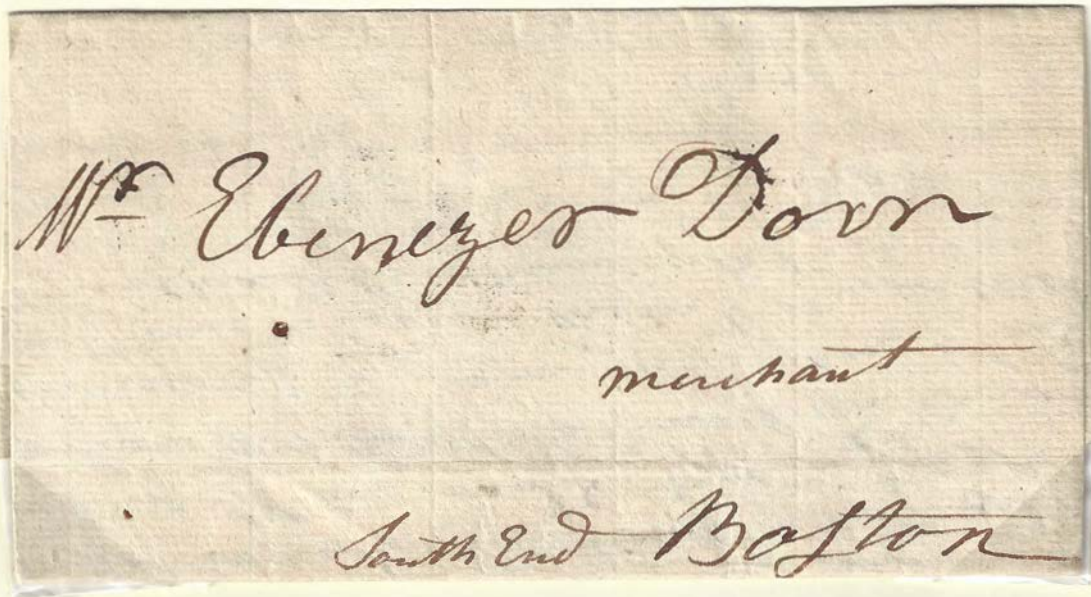 Mr Ebenezer Dorr
merchant
South End Boston